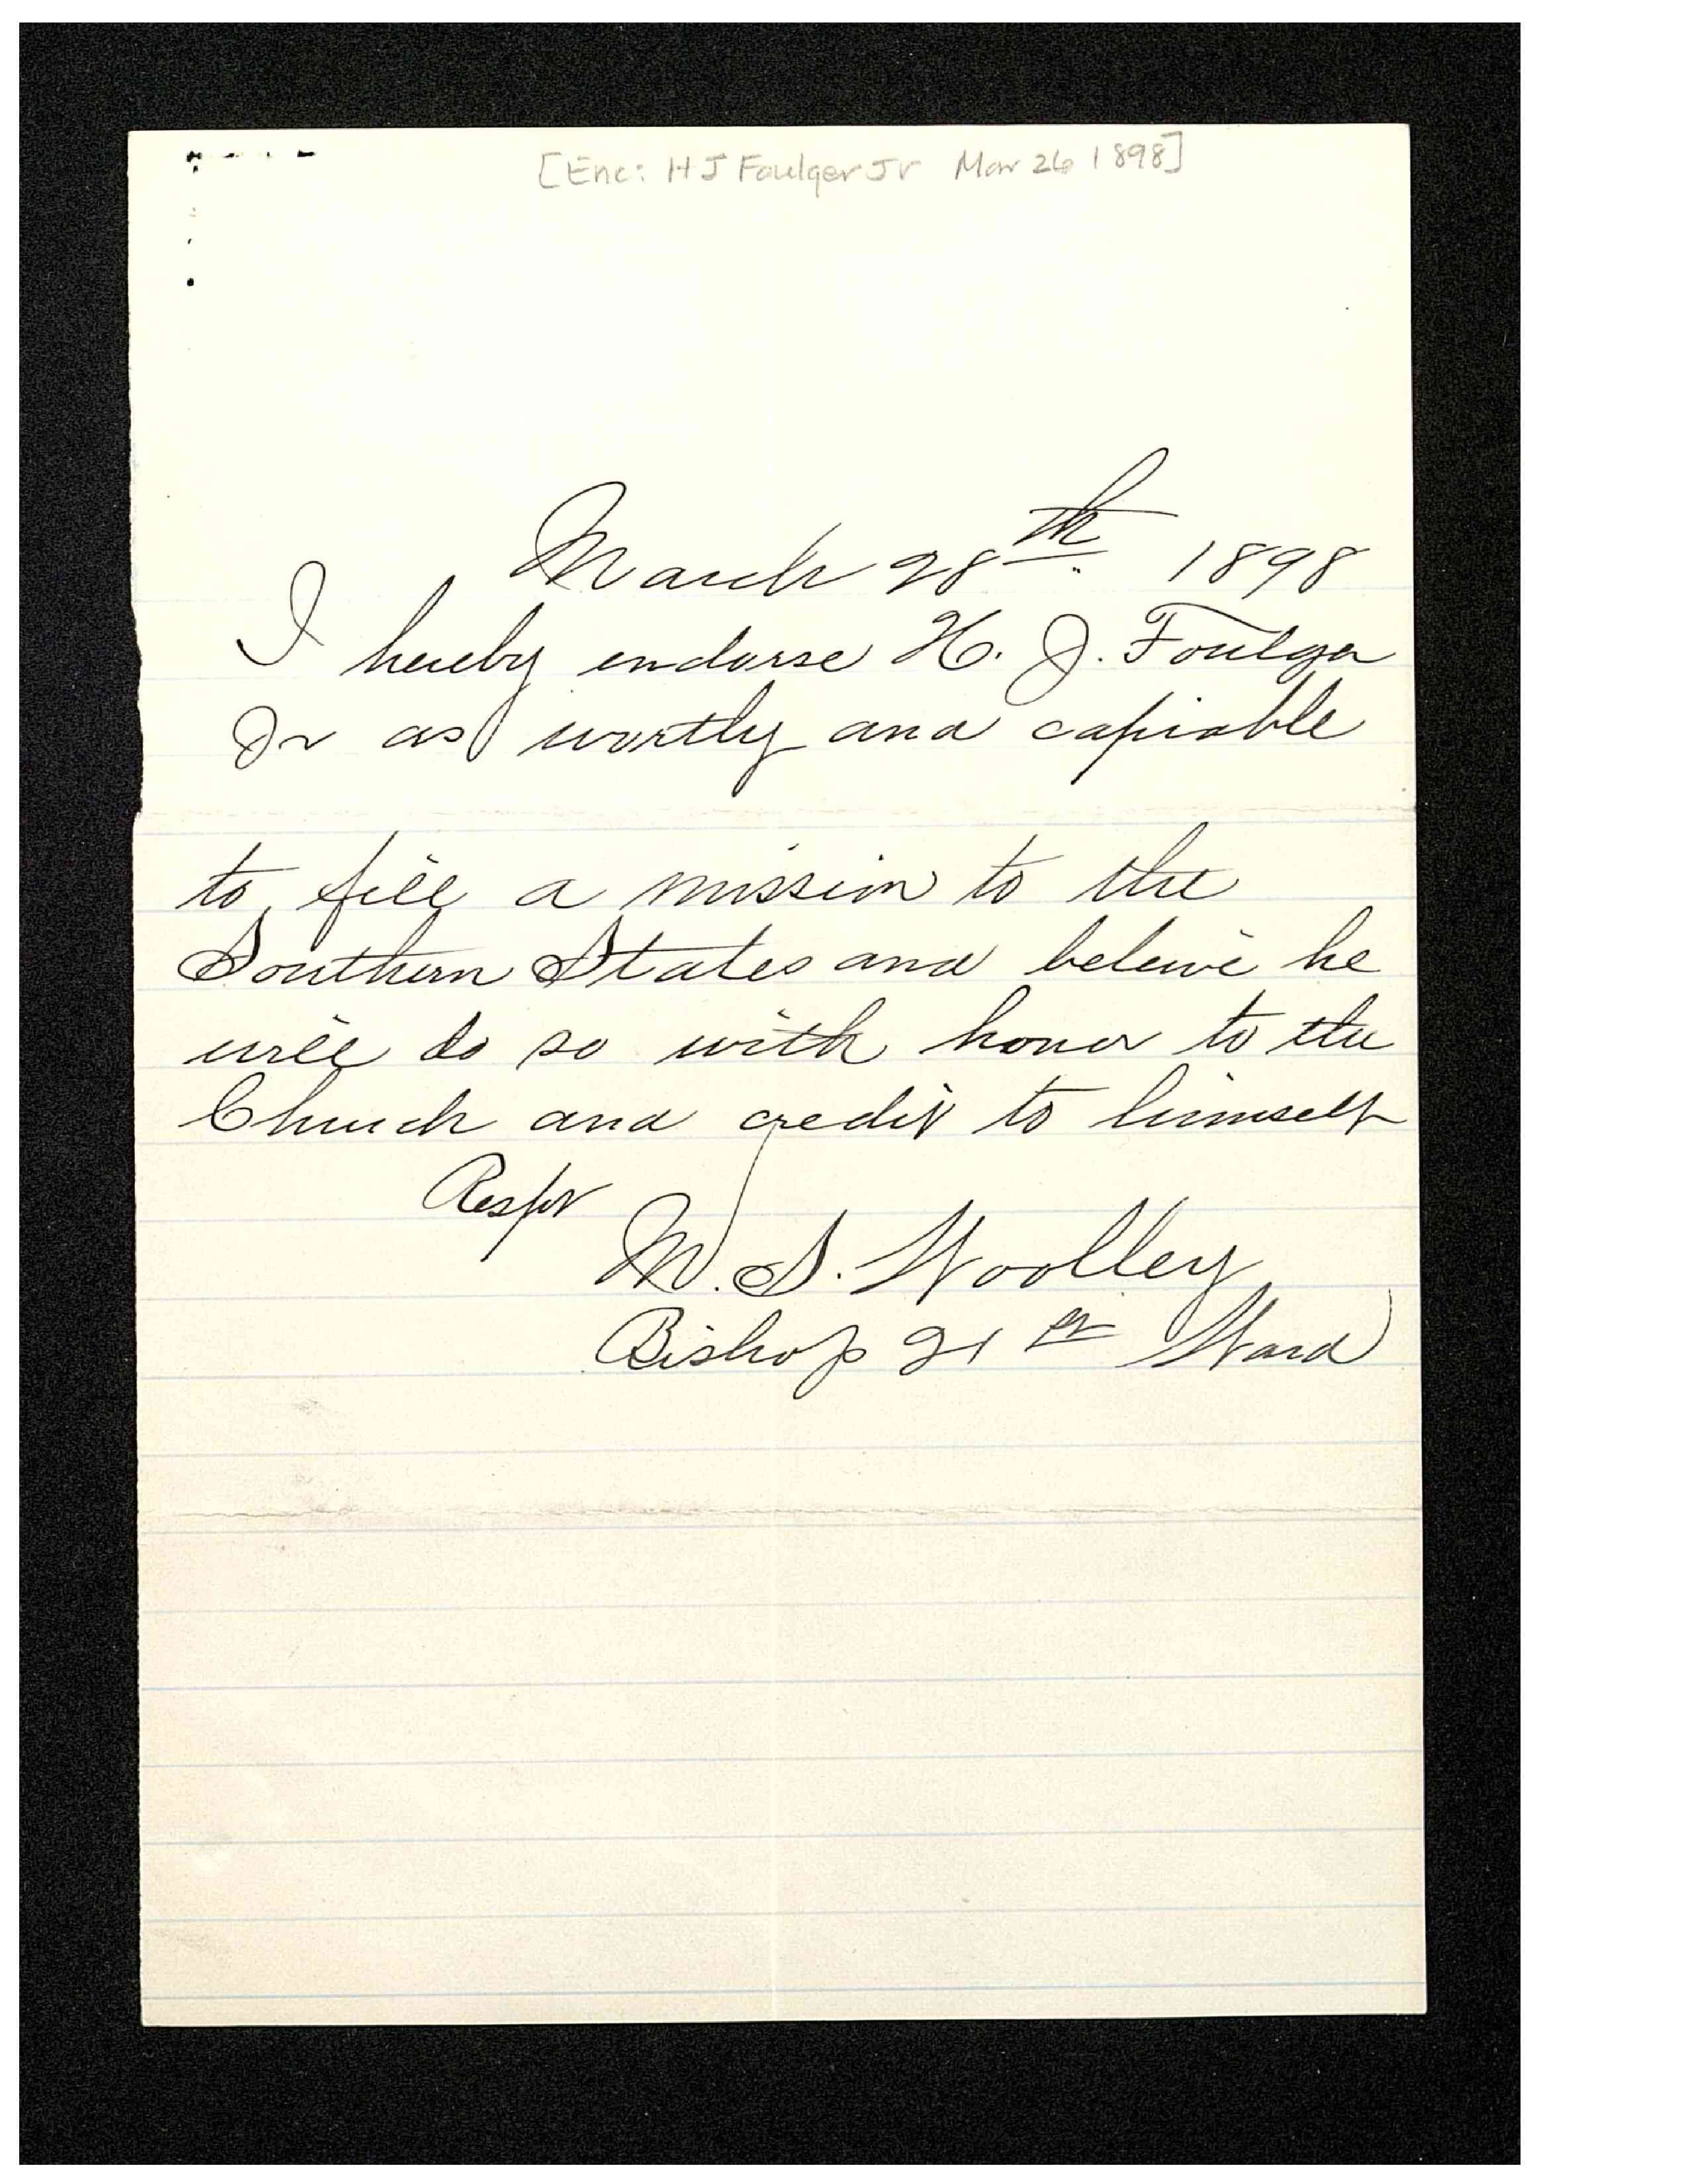 [Enc: H J Foulger Jr Mar 26 1898]
March 28th 1898
I hereby endorse H. J. Foulger
Jr as worthy and capiable
to fill a mission to the
Southern States and beleive he
will do so with honor to the
Church and credit to himself
Respt
M. S. Woolley
Bishop 21st Ward